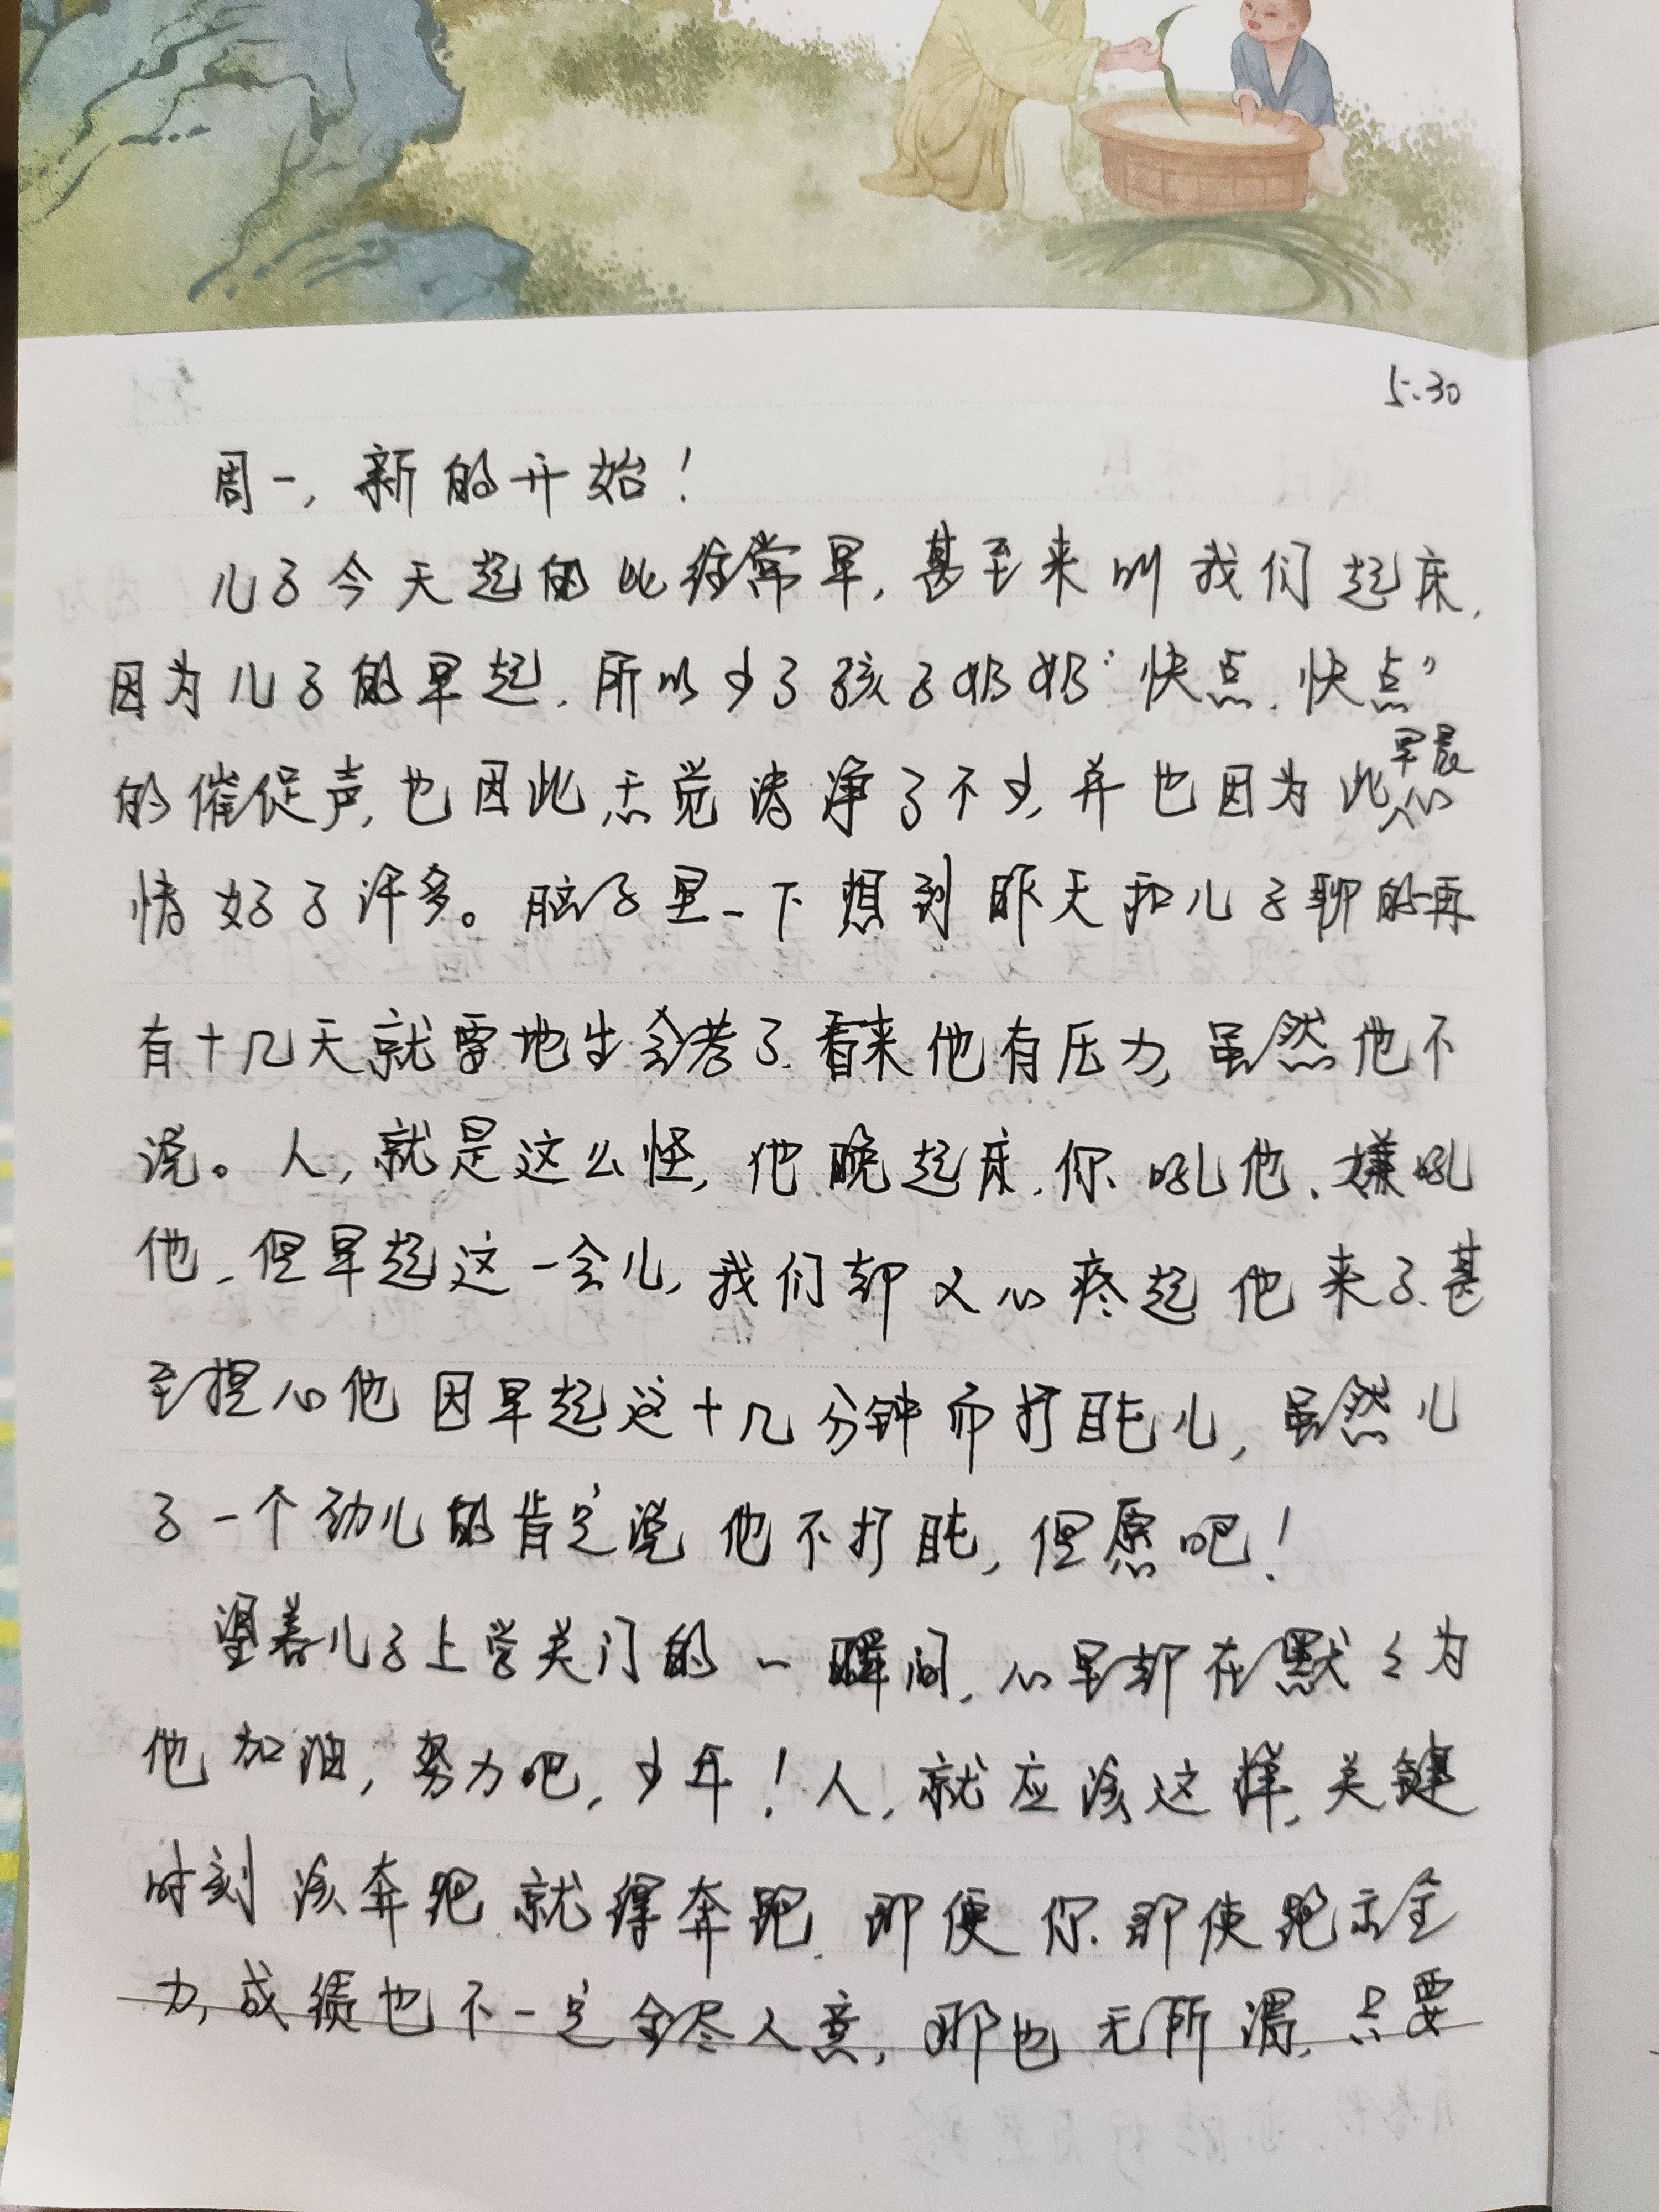 5.30
周一,新的开始!
儿子今天起的比经常早,甚至来叫我们起床,
因为儿子的早起,所以少了孩子奶奶“快点,快点”
的催促声,也因此感觉清净了不少,并也因为此早晨心
情好了许多。脑子里一下想到昨天和儿子聊的再
有十几天就要地生会考了,看来他有压力,虽然他不
说。人,就是这么怪,他晚起床,你吼他、嫌吼
他,但早起这一会儿,我们却又心疼起他来了,甚
至担心他因早起这十几分钟而打盹儿,虽然儿
子一个劲儿的肯定说他不打盹,但愿吧!
望着儿子上学关门的一瞬间,心里却在默々为
他加油,努力吧,少年!人,就应该这样,关键
时刻该奔跑就得奔跑,即便你即使跑示全
力,成绩也不一定全尽人意,那也无所谓,只要